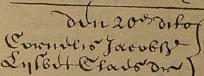 den 20en dito
Cornelis Jacobsz
Lijsbet Claes dr